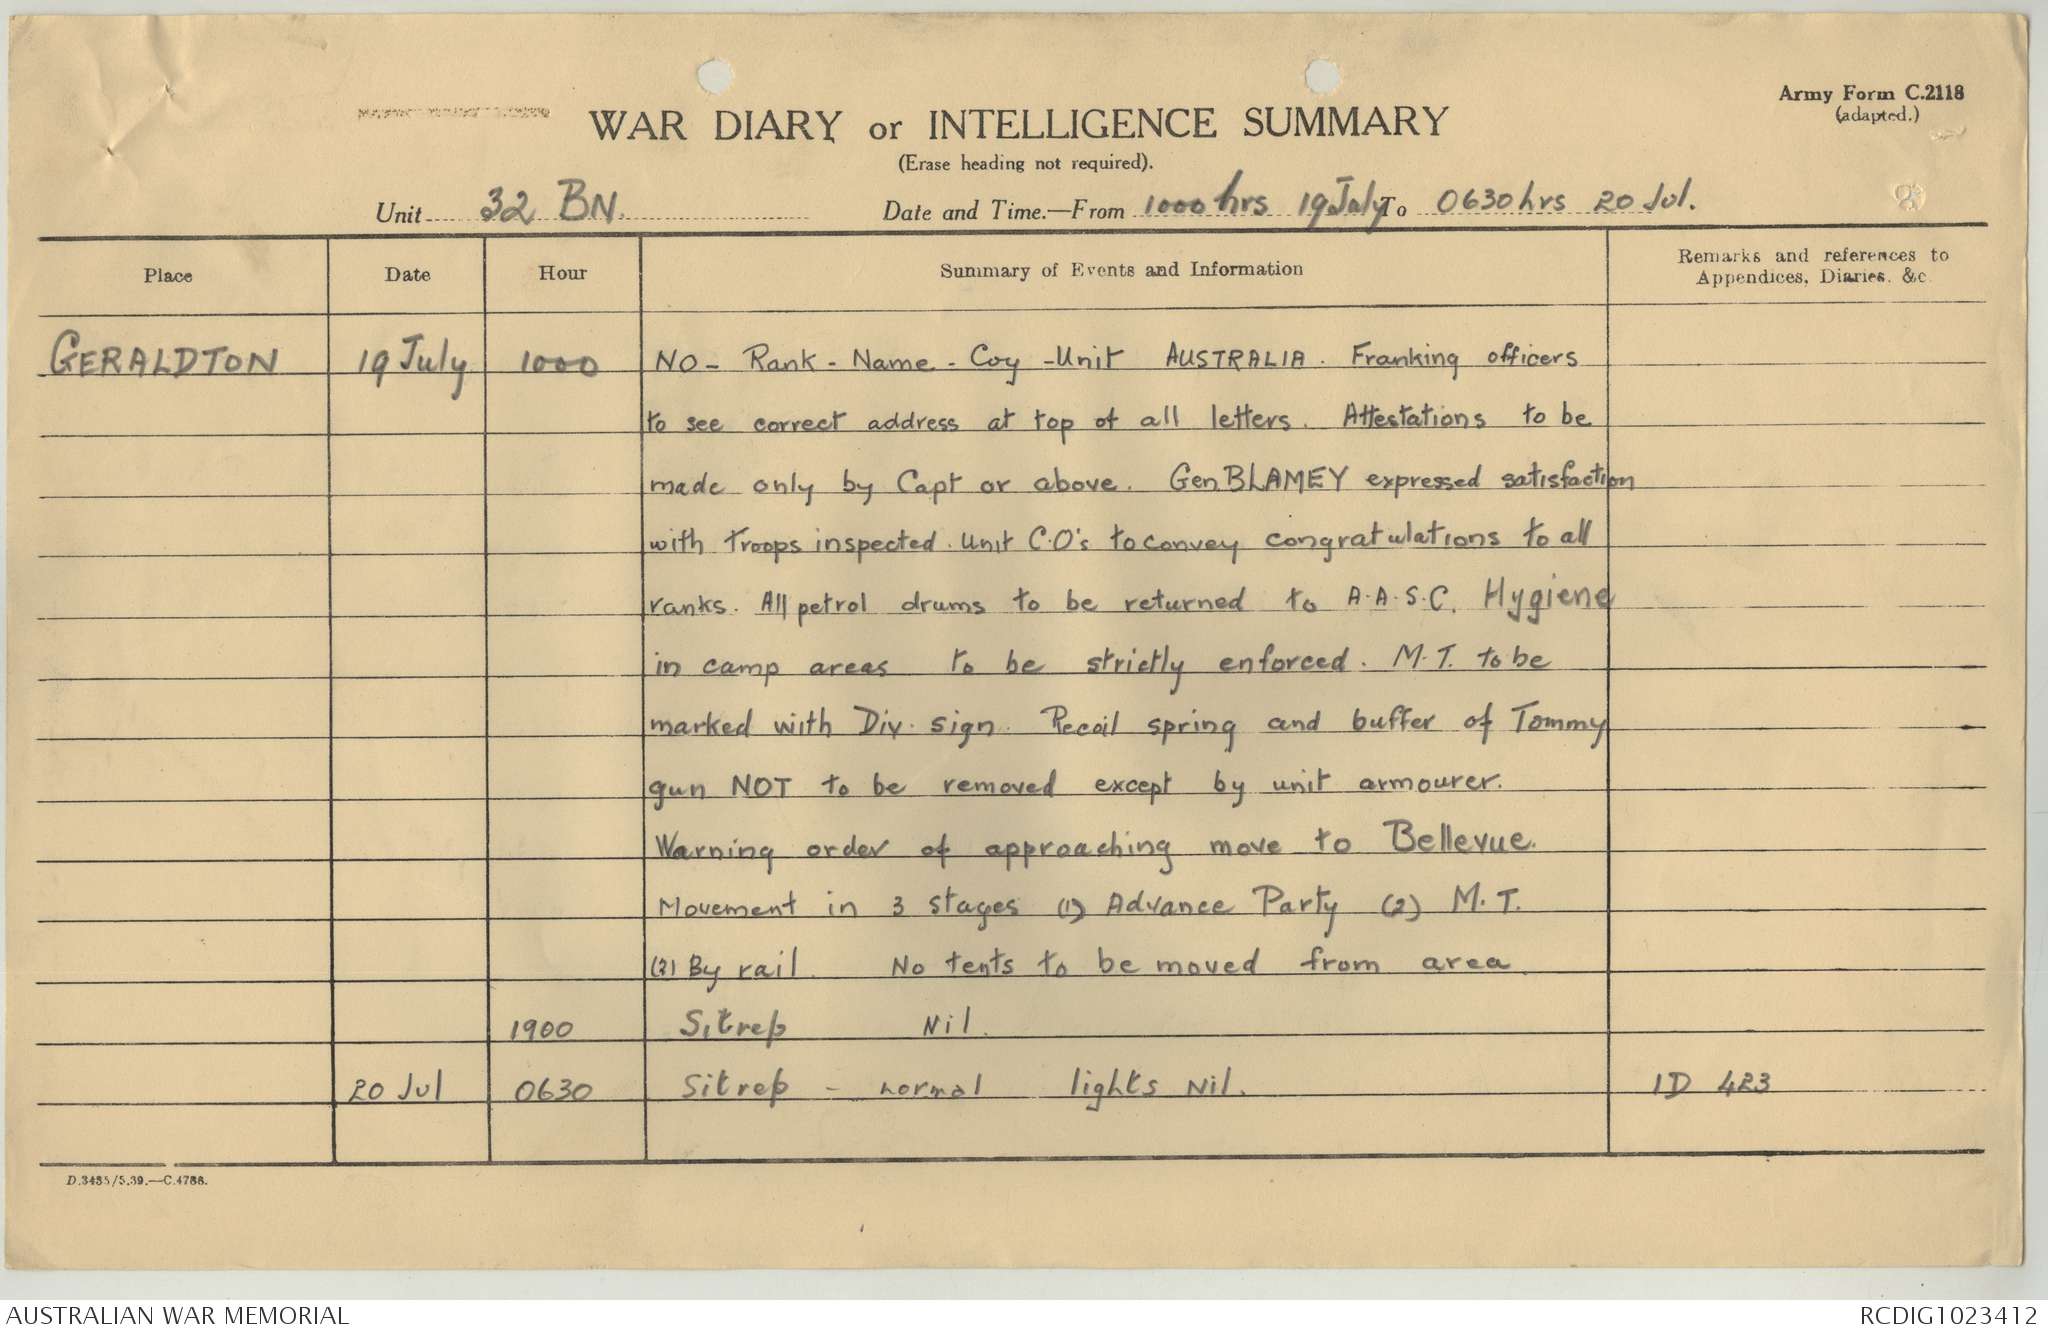 Army Form C.2118
(adapted.)
WAR DIARY or INTELLIGENCE SUMMARY
(Erase heading not required).
Unit 32 BN. Date and Time.—From 1000 hrs 19 July To 0630 hrs 20 Jul.
Place Date Hour Summary of Events and Information Remarks and references to
Appendices, Diaries. &c
GERALDTON 19 July 1000 NO - Rank - Name - Coy - Unit AUSTRALIA. Franking officers
to see correct address at top of all letters. Attestations to be
made only by Capt or above. Gen BLAMEY expressed satisfaction
with troops inspected. Unit C.O's to convey congratulations to all
ranks. All petrol drums to be returned to A.A.S.C. Hygiene
in camp areas to be strictly enforced. M.T. to be
marked with Div. sign. Recoil spring and buffer of Tommy
gun NOT to be removed except by unit armourer.
Warning order of approaching move to Bellevue.
Movement in 3 stages (1) Advance Party (2) M.T.
(3) By rail. No tents to be moved from area
1900 Sitrep Nil.
20 Jul 0630 Sitrep - normal lights Nil. ID 423
D.3435/5.39.—C.4788.
AUSTRALIAN WAR MEMORIAL RCDIG1023412